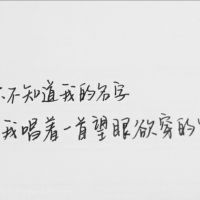 不知道我的名字
我唱着一首望眼欲穿的